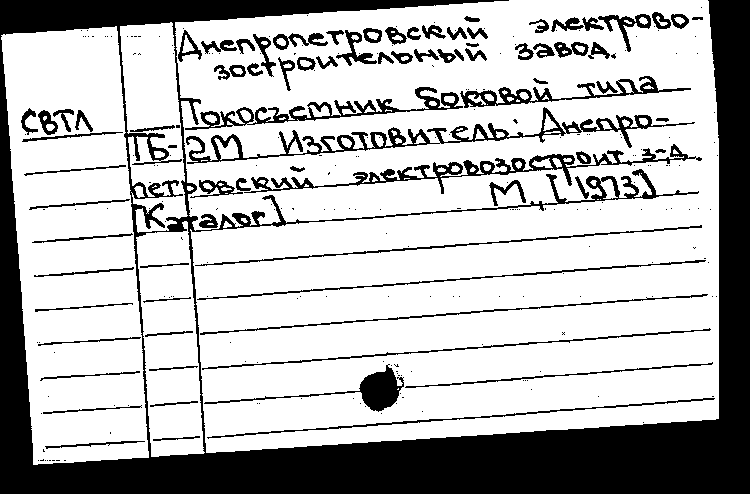 Днепропетровский электрово-
зостроительный завод.
СВТЛ
Токосъемник боковой типа
ТБ-2М. Изготовитель: Днепро-
петровский электровозостроит. з-д.
М., [1973].
[Каталог].